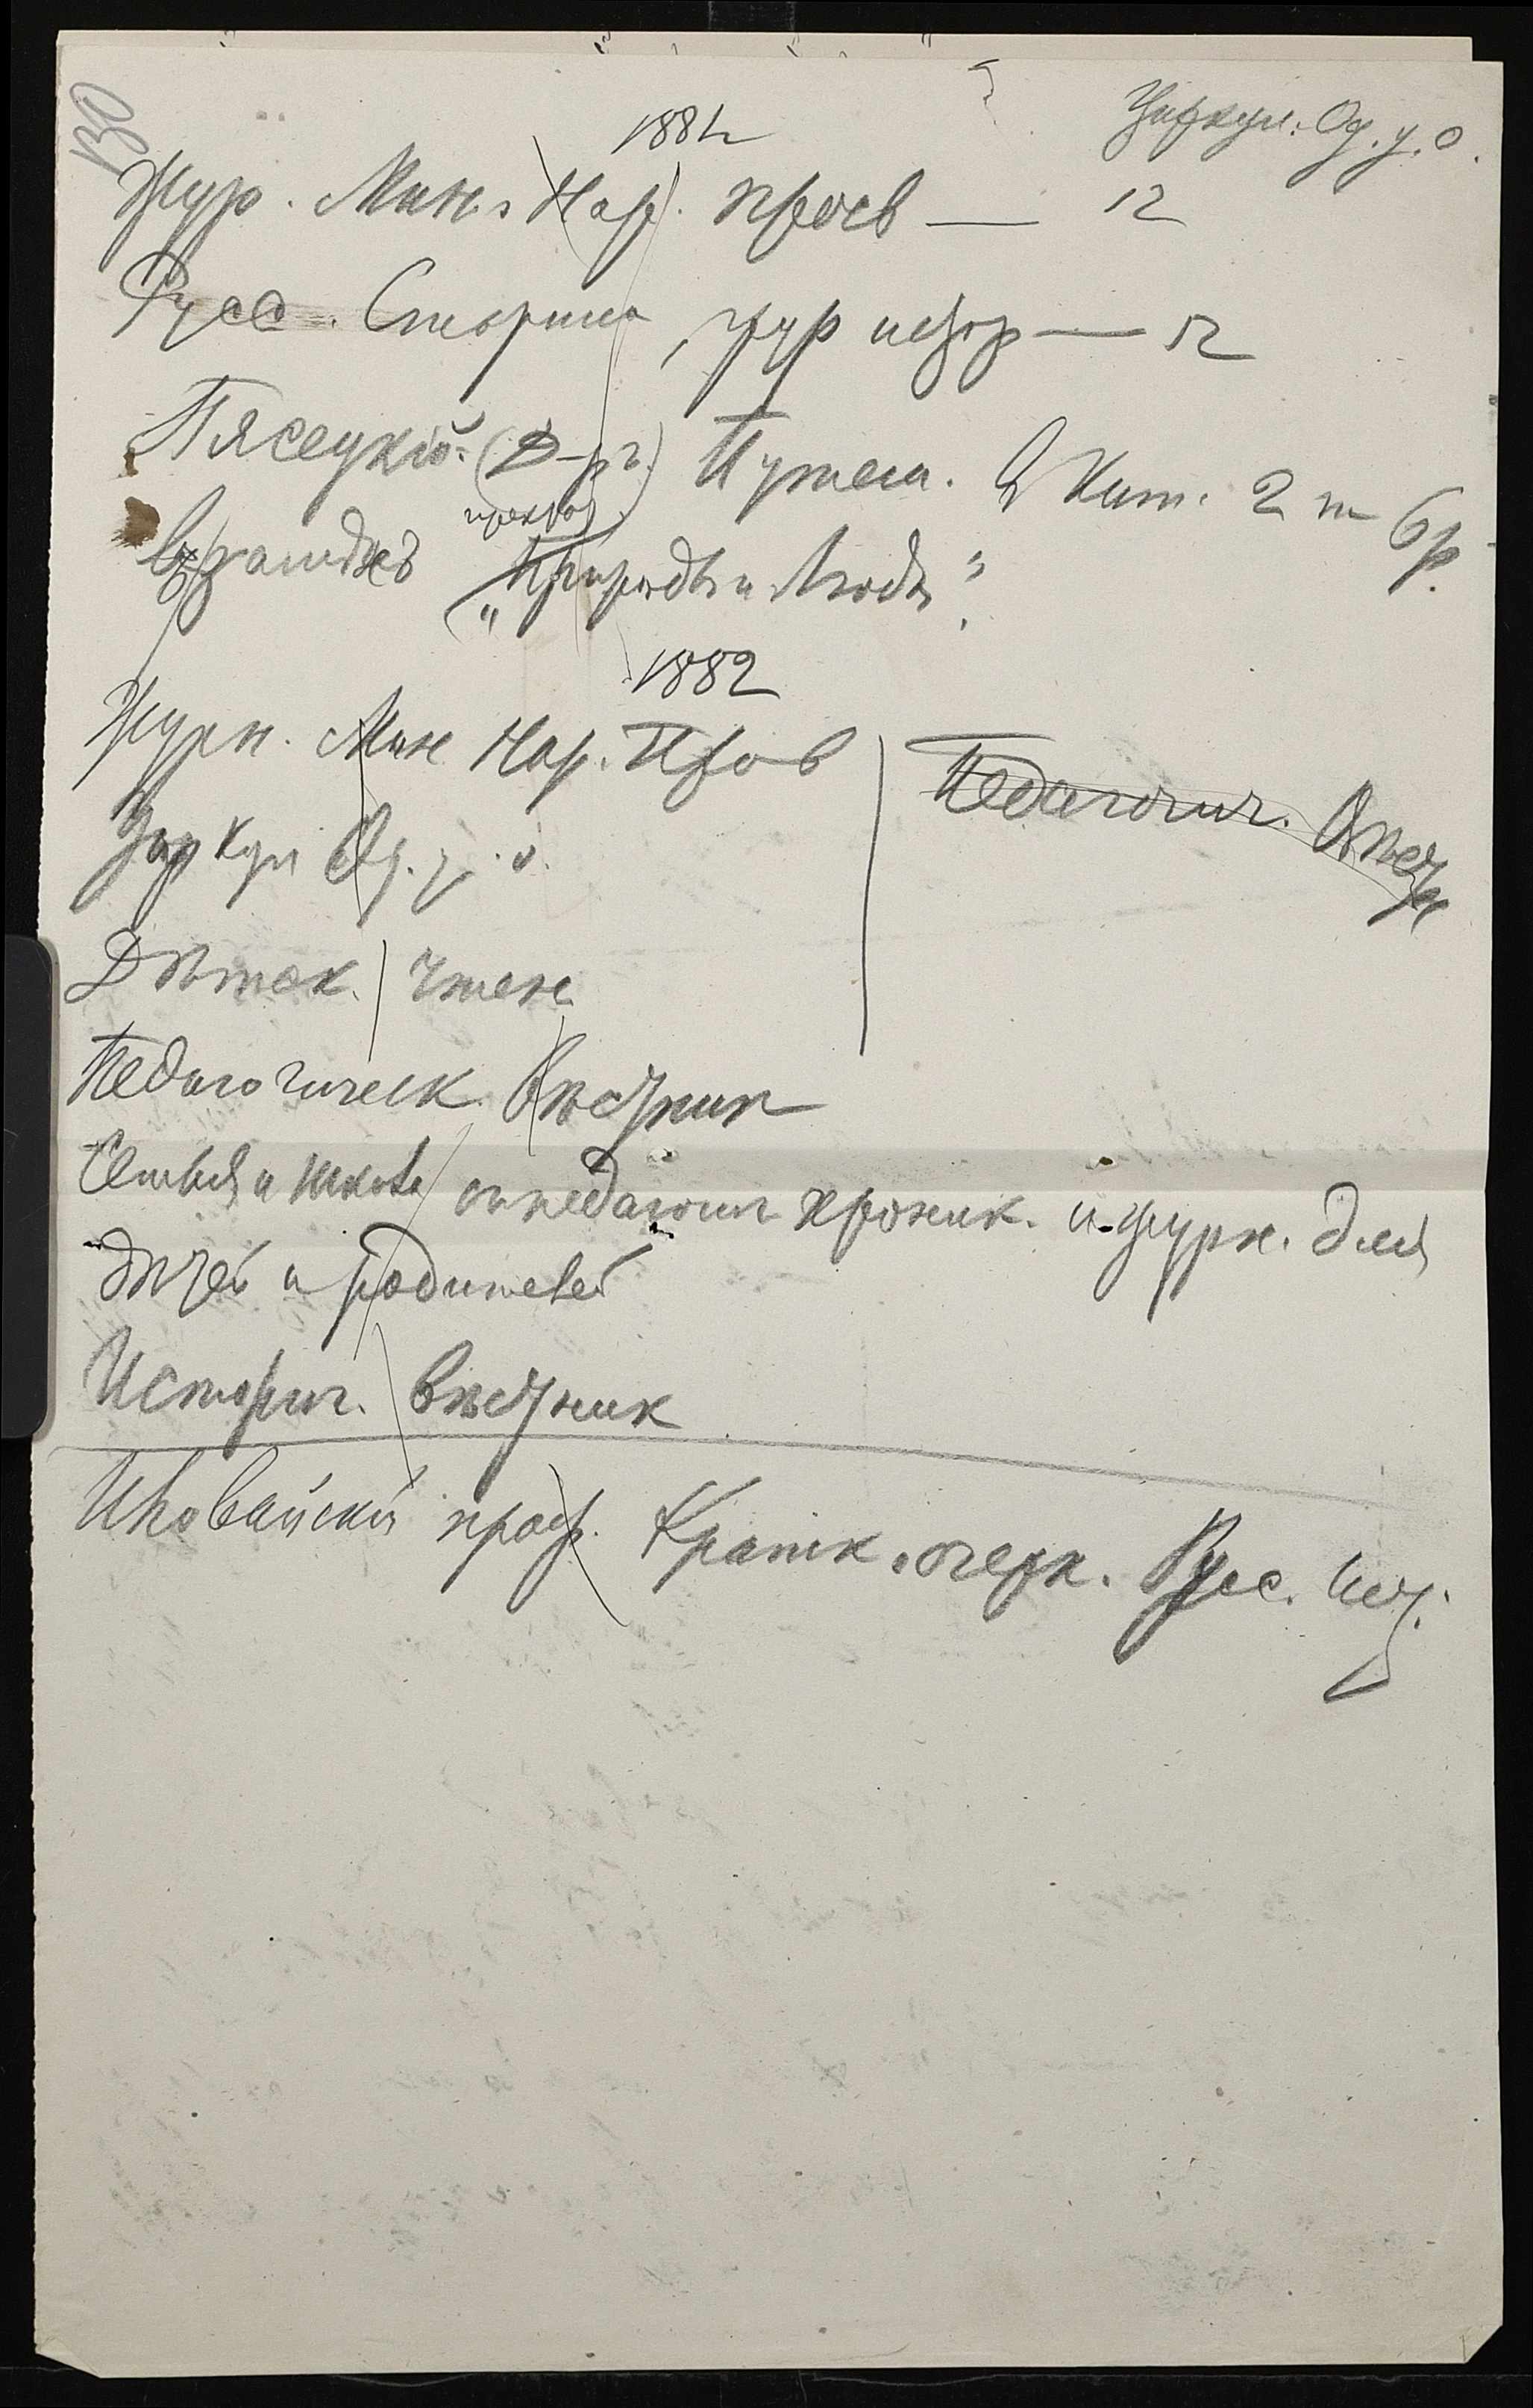 Циркул. Од. у. о.
188
Жур. Мин. Нар. просв — 12
Русс. Старина, жур истор — 12
Пясецкій (Д-ръ.) Путеш. в Кит. 2 т 6р.
„Природы и Люди"
1882
Журн. Мин Нар. Пров
Педагогич. Вѣст
Циркул Од. у. о.
Дѣтск. Чтен.
Педагогическ. Вѣстник
Семья и Школа педагогич хроник. и журн. для
дѣтей и родителей
Историч. Вѣстник
Иловайскій проф. Кратк. очерк. Русс. Ист.